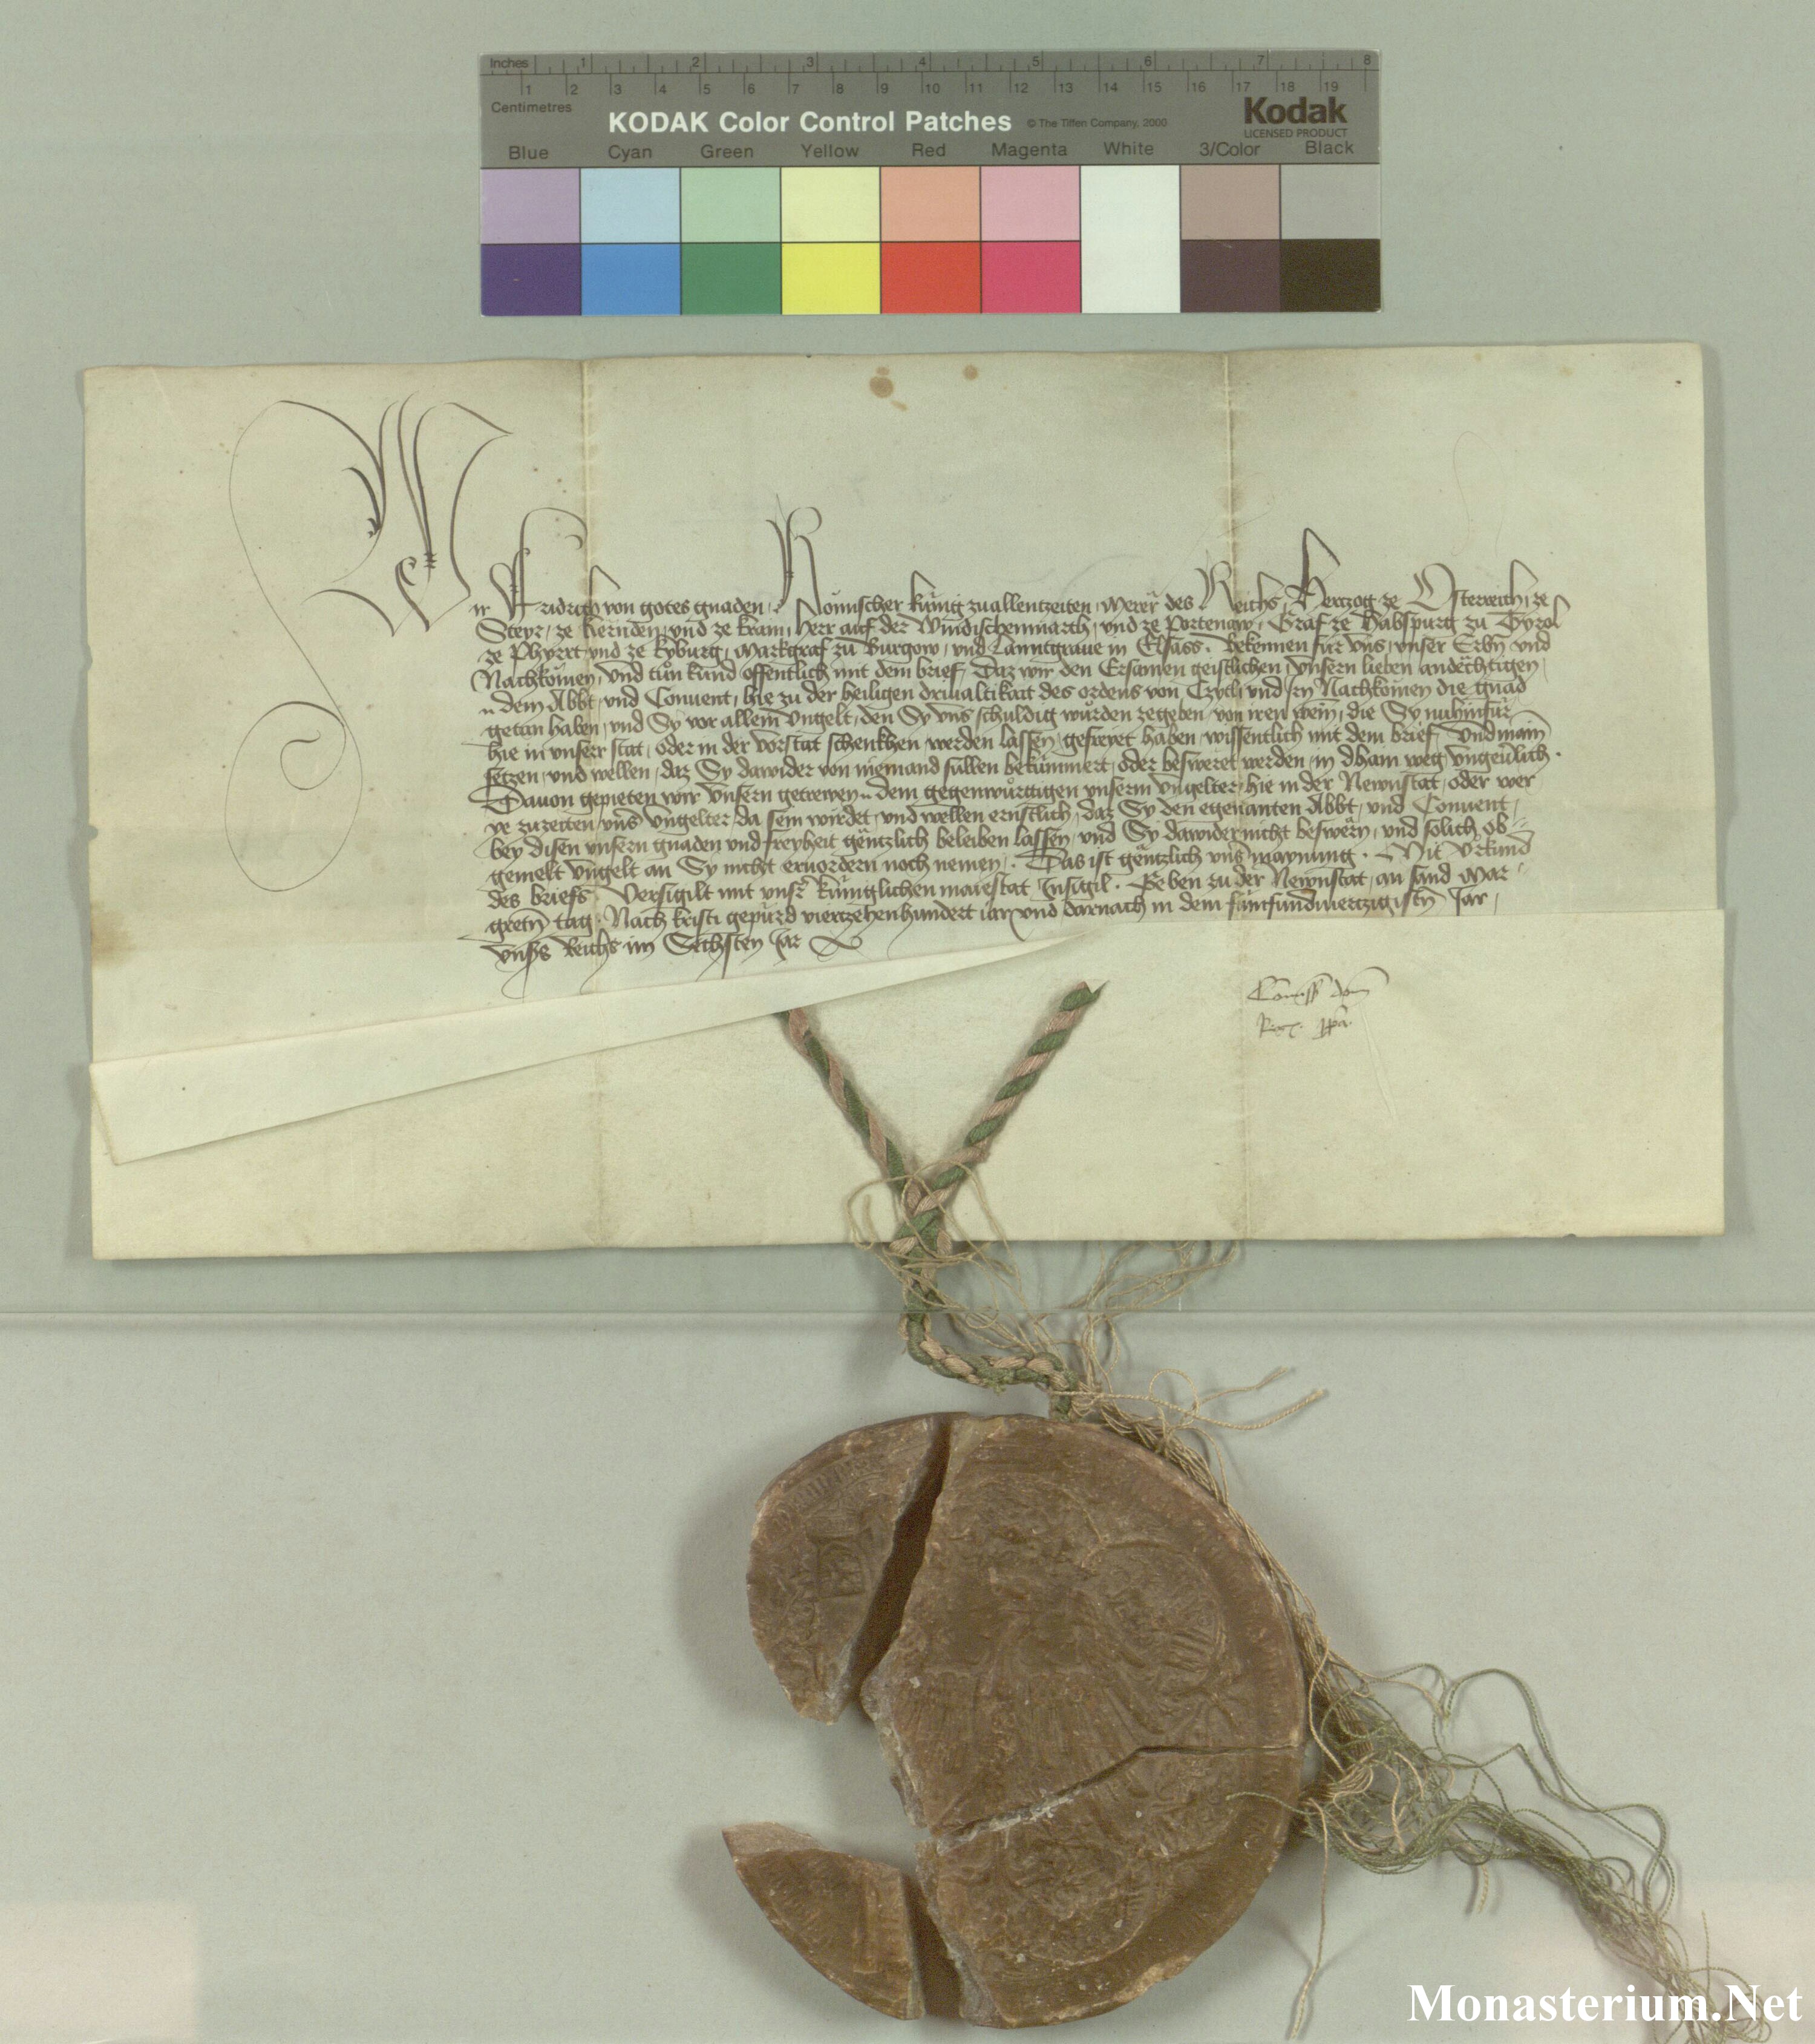 Inches 1 2 3 4 5 6 7 8
1 2 3 4 5 6 7 8 9 10 11 12 13 14 15 16 17 18 19
Centimetres
KODAK Color Control Patches © The Tiffen Company, 2000 Kodak
LICENSED PRODUCT
Blue Cyan Green Yellow Red Magenta White 3/Color Black
Wir Fridreich von gotes gnaden, Römischer kunig zuallenntzeiten, merer des Reichs, Hertzog ze Österreich, ze
Steyr, ze Kernden, und ze Krain, Herr auf der Windischenmarch, und ze Portenaw, Graf ze Habspurg zu Tyrol
ze Phyrrt und ze Kyburg, Markgraf zu Burgow, und Lanntgraue in Elsass. Bekennen für uns, unser Erbn und
Nachkömen, und tůn kund offentlich mit dem brief, Daz wir den Ersamen geistlichen unsern lieben andechtigen,
.. dem Abbt, und Conuent, hie zu der heiligen driualtikait des ordens von Czytl, und irn Nachkömen die gnad
getan haben, und Sy vor allem ungelt, den Sy uns schuldig würden zegeben, von iren wein, die Sy nuhinfür
hie in unserr stat, oder in der vorstat schenkhen werden lassen, gefreyet haben, wissentlich mit dem brief, Und main
setzen, und wellen, daz Sy dawider von niemand sullen bekümmert, oder besweret werden, in dhain weg ungeuerlich.
Dauon gepieten wir unsern getrewen .. dem gegenwürttigen unserm ungelter, hie in der Newnstat, oder wer
ye zuzeiten, uns ungelter da sein wirdet, und wellen ernstlich, daz Sy den egenanten Abbt, und Conuent,
bey disen unsern gnaden und freyheit gentzlich beleiben lassen, und Sy dawider nicht beswern, und solich ob
gemelt ungelt an Sy nicht eruordern noch nemen. Das ist gentzlich uns maynung. Mit Urkund
des briefs. Versigilt mit unsr kunglichen maiestat Insigil. Geben zu der Newnstat, an sand Mar
gretn tag. Nach kristi gepurd viertzehenhundert iar, und darnach in dem fumfundviertzigistn Jar,
unsers Reichs im Sechsten Jar
Commissio domini
Regis ppa.
Monasterium.Net